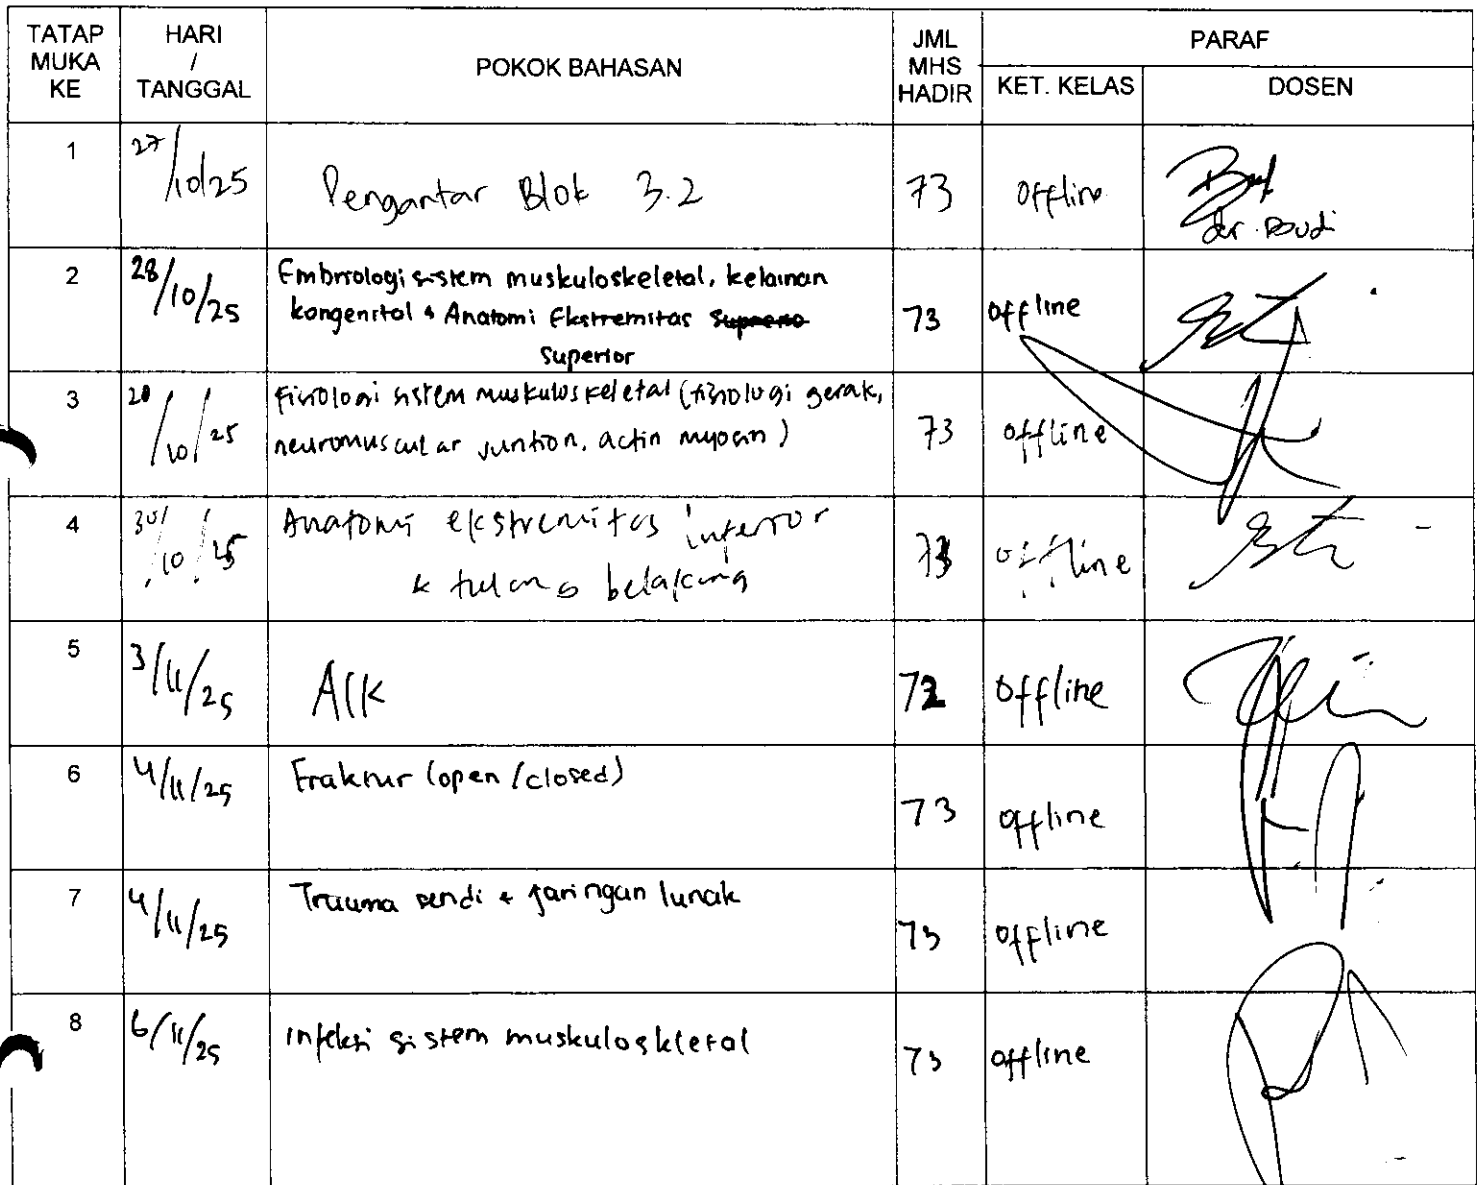 TATAP MUKA KE
HARI / TANGGAL
POKOK BAHASAN
JML MHS HADIR
PARAF
KET. KELAS
DOSEN
1
27/10/25
Pengantar Blok 3.2
73
Offline
dr. Boudi
2
28/10/25
Embriologi sistem muskuloskeletal, kelainan
kongenital & Anatomi Ekstremitas
Superior
73
offline
3
/10/25
Fisiologi sistem muskuloskeletal (fisiologi gerak,
neuromuscular juntion, actin myosin)
73
offline
4
30/10/25
Anatomi ekstremitas inferior
& tulang belakang
73
offline
5
3/11/25
72
offline
6
4/11/25
Fraktur (open/closed)
73
offline
7
4/11/25
Trauma sendi & jaringan lunak
73
offline
8
6/11/25
infeksi sistem muskuloskletal
73
offline